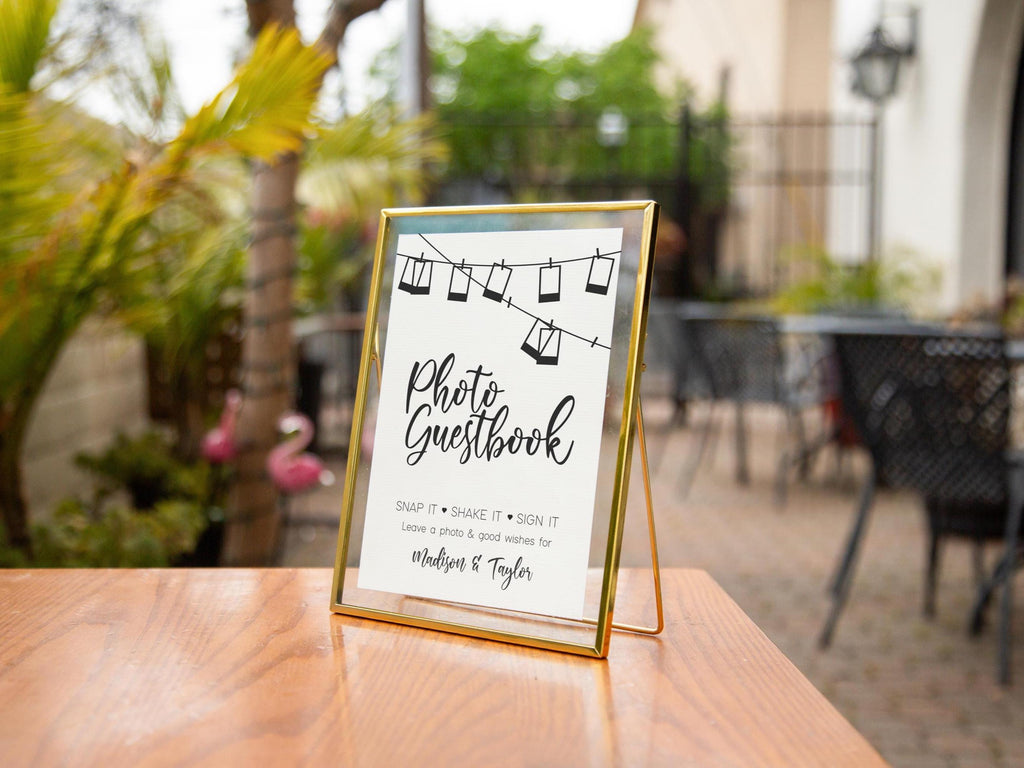 Photo
Guestbook
SNAP IT ♥ SHAKE IT ♥ SIGN IT
Leave a photo & good wishes for
Madison & Taylor